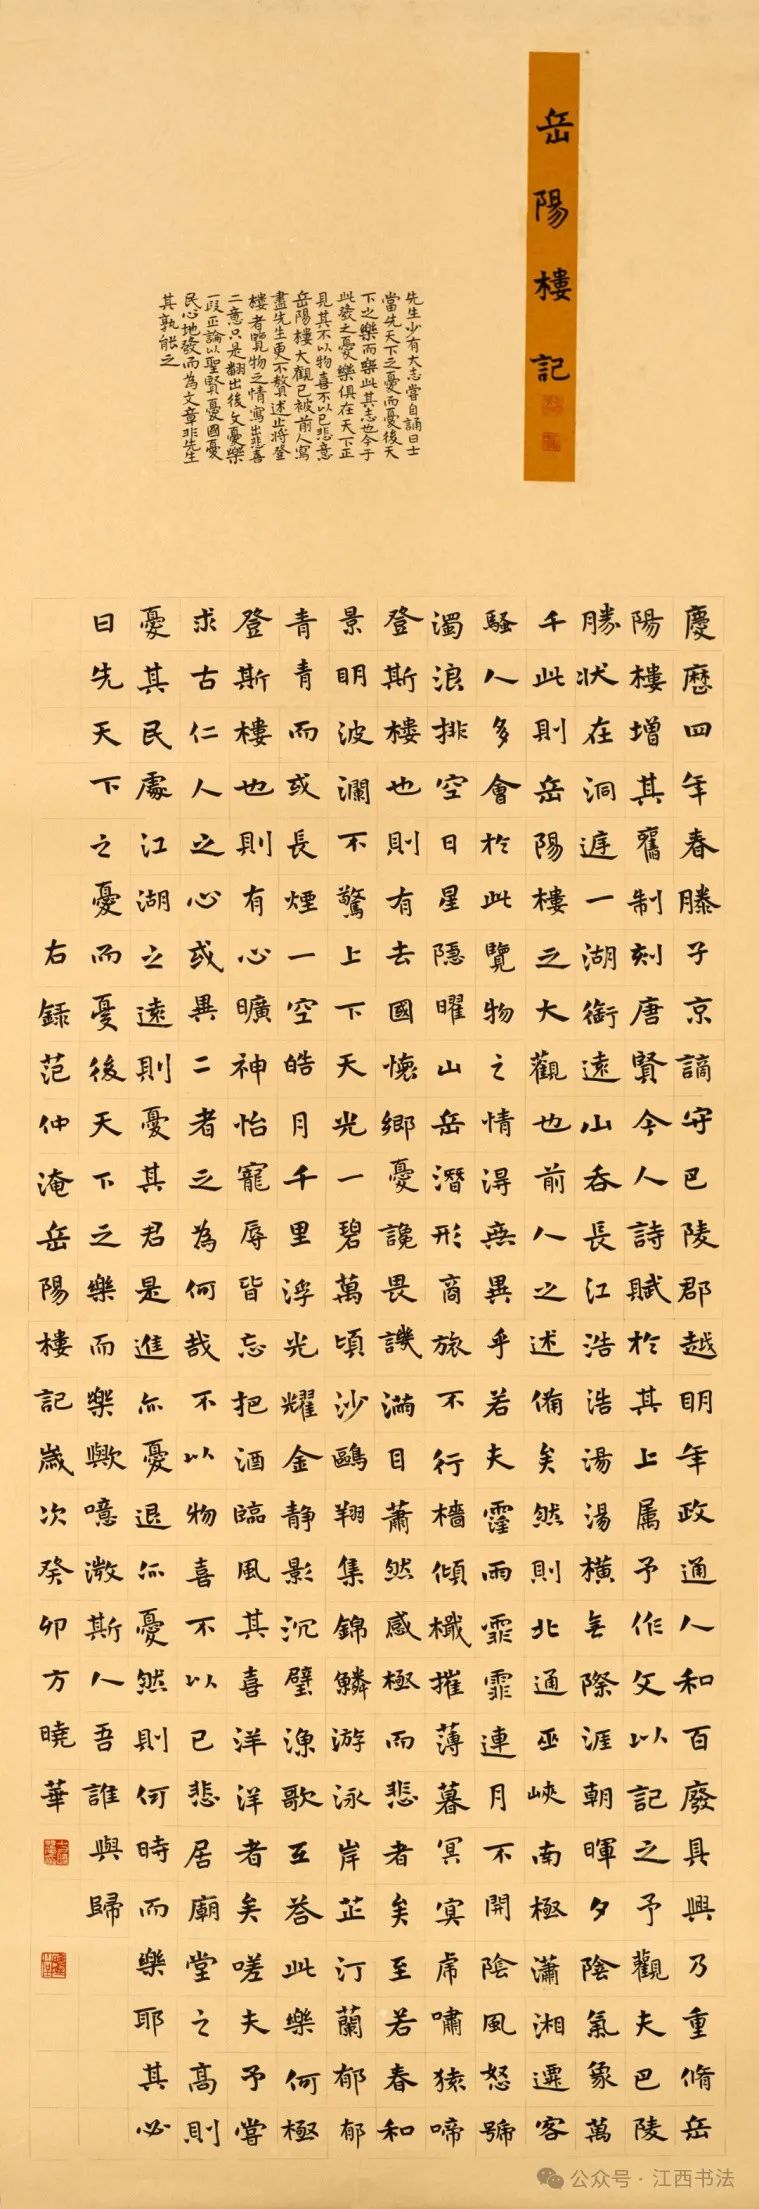 岳陽樓記
先生少有大志嘗自誦曰士
當先天下之憂而憂後天
下之樂而樂此其志也今于
此發之憂樂俱在天下正
見其不以物喜不以己悲意
岳陽樓大觀已被前人寫
盡先生更不贅述止將登
樓者覽物之情寫出悲喜
二意只是翻出後文憂樂
一段正論以聖賢憂國憂
民心地發而為文章非先生
其孰能之
慶曆四年春滕子京謫守巴陵郡越明年政通人和百廢具興乃重脩岳
陽樓增其舊制刻唐賢今人詩賦於其上属予作文以記之予觀夫巴陵
勝狀在洞庭一湖銜遠山吞長江浩浩湯湯橫無際涯朝暉夕陰氣象萬
千此則岳陽樓之大觀也前人之述備矣然則北通巫峽南極瀟湘遷客
騷人多會於此覽物之情得無異乎若夫霪雨霏霏連月不開陰風怒號
濁浪排空日星隱曜山岳潛形商旅不行檣傾檝摧薄暮冥冥虎嘯猿啼
登斯樓也則有去國懷鄉憂讒畏譏滿目蕭然感極而悲者矣至若春和
景明波瀾不驚上下天光一碧萬頃沙鷗翔集錦鱗游泳岸芷汀蘭郁郁
青青而或長煙一空皓月千里浮光耀金静影沉璧漁歌互答此樂何極
登斯樓也則有心曠神怡寵辱皆忘把酒臨風其喜洋洋者矣嗟夫予嘗
求古仁人之心或異二者之為何哉不以物喜不以己悲居廟堂之高則
憂其民處江湖之遠則憂其君是進亦憂退亦憂然則何時而樂耶其必
曰先天下之憂而憂後天下之樂而樂歟噫微斯人吾誰與歸
右録范仲淹岳陽樓記歲次癸卯方曉華
公众号·江西书法